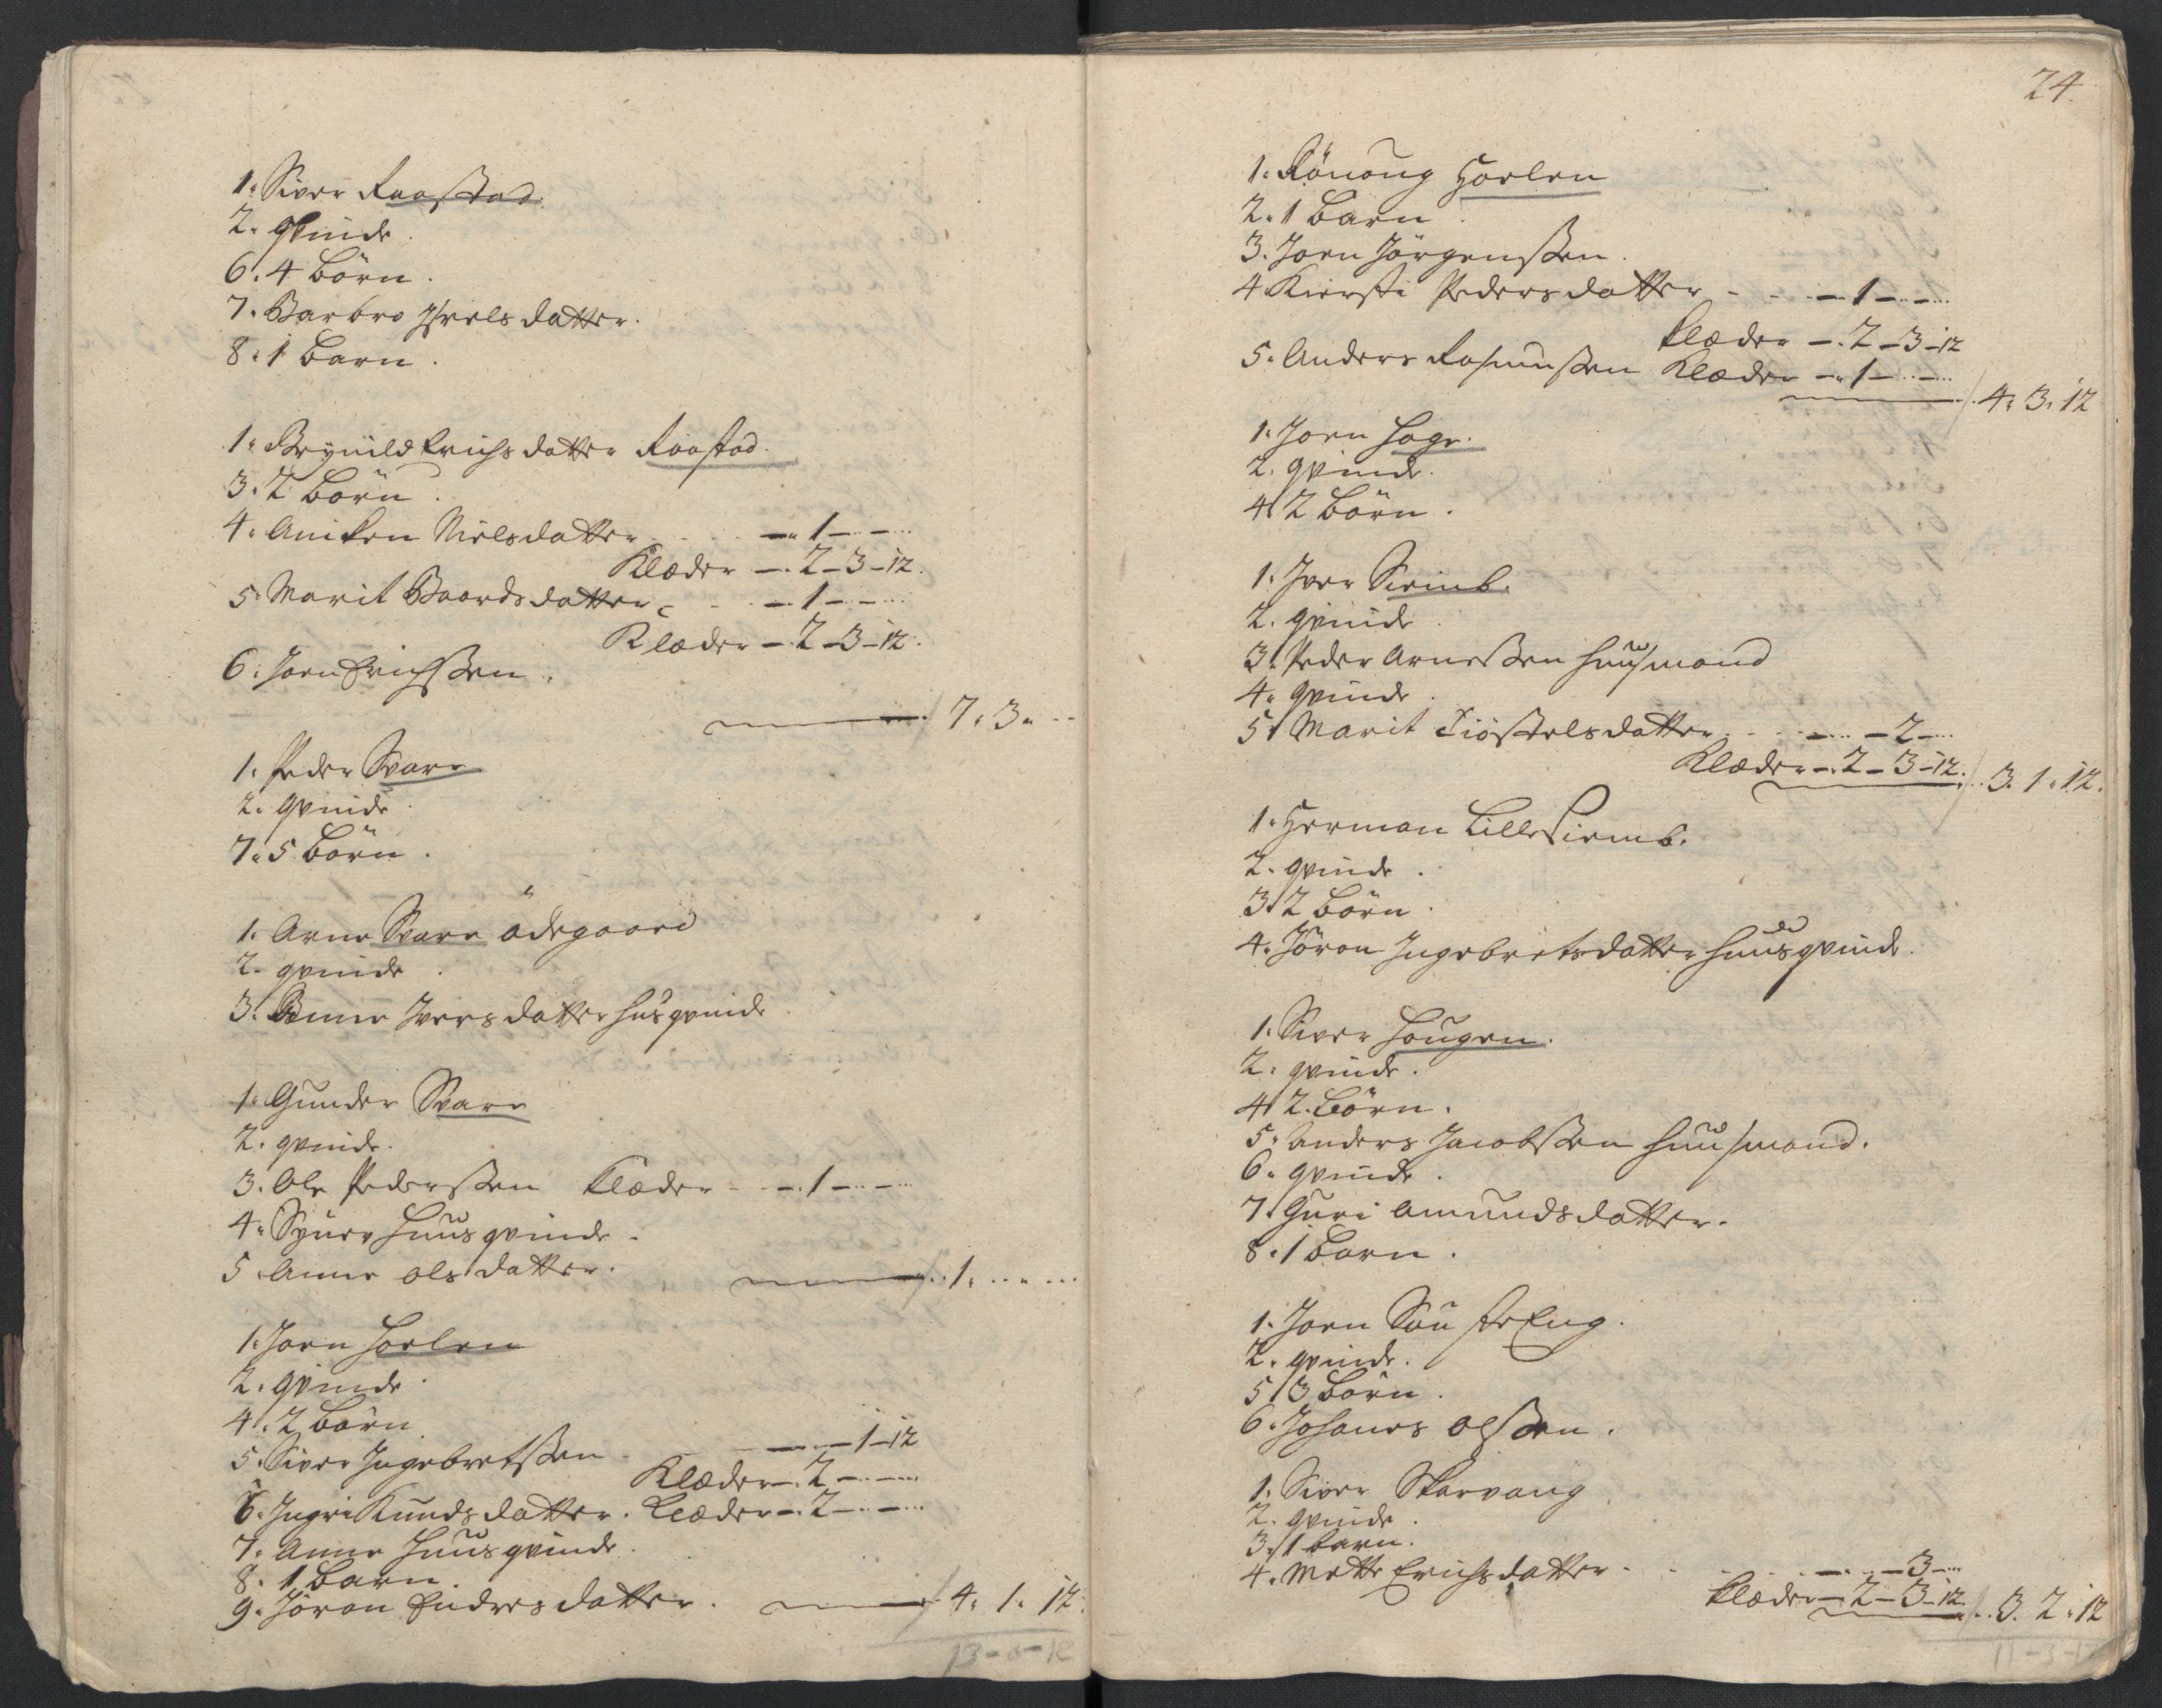 1. Siver Raastad.
2. qvinde.
6. 4 börn.
7. Barbro Iversdatter.
8. 1 barn.
1. Brynild Erichsdatter Raastad.
3. 2 börn.
4. Aniken Nielsdatter - - - 1 - -
Klæder - 2 - 3 - 12.
5. Marit Baardsdatter - - 1 - -
Klæder - 2 - 3 - 12.
6. Joen Erichssen.
7. 3. --
1. Peder Svare
2. qvinde
7. 5 börn.
1. Arne Svare ödegaard
2. qvinde.
3. Anne Iversdatter husqvinde
1. Gunder Svare
2. qvinde.
3. Ole Pederssen Klæder - - 1 - -
4. Synev huusqvinde.
5. Anne olsdatter.
1. -- --
1. Joen Hoelen
2. qvinde.
4. 2 börn.
5. Siver Ingebretssen - - 1 - 12
Klæder - 2 - -
6. Ingri Knudsdatter. Klæder - 2 - -
7. Anne huusqvinde.
8. 1 barn.
9. Jöran Endresdatter.
4. 1. 12.
13 - 0 - 12
24.
1. Rönoug Hoelen
2. 1 barn.
3. Joen Jörgenssen.
4. Kiersti Pedersdatter - - - 1 - -
Klæder - 2 - 3 - 12
5. Anders Rasmussen Klæder - 1 - -
4. 3. 12
1. Joen Hage.
2. qvinde.
4. 2 börn.
1. Iver Siemb.
2. qvinde.
3. Peder Arnessen huusmand
4. qvinde.
5. Marit Tiöstelsdatter - - - 2 -
Klæder - 2 - 3 - 12.
3. 1. 12.
1. Herman Lille Siemb.
2. qvinde.
3. 2 börn.
4. Jöran Ingebretsdatter huusqvinde.
1. Siver Hougen.
2. qvinde.
4. 2 börn.
5. Anders Jacobssen huusmand.
6. qvinde.
7. Guri Amundsdatter.
8. 1 barn.
1. Joen Sön steEng.
2. qvinde.
5. 3 börn.
6. Johanes olssen.
1. Siver Skarvang
2. qvinde.
3. 1 barn.
4. Mette Erichsdatter - - - - 3 -
Klæder - 2 - 3 - 12.
3. 2. 12
11 - 3 - 12